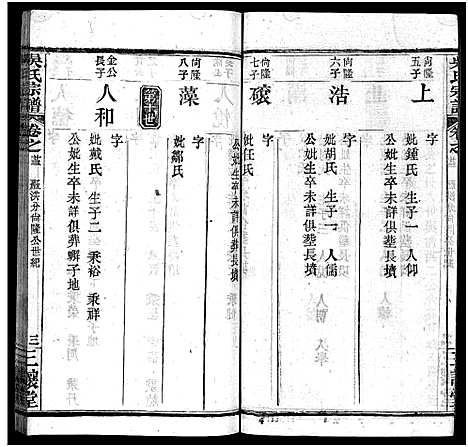 吳氏宗譜
卷之
尙隆 五子
上
字
妣鍾氏 生子一 人仰
公妣生卒未詳俱塟長墳
尙隆 六子
浩
字
妣胡氏 生子一 人儒
公妣生卒未詳俱塟長墳
尙隆 七子
字
妣任氏
公妣生卒未詳俱塟長墳
尙隆 八子
藻
字
妣鄒氏
公長子
人和
字
妣戴氏 生子二 秉裕 秉祥
公妣生卒未詳俱葬獬子地
吳氏宗譜
卷之
洪分尙隆公世紀
三
讓堂